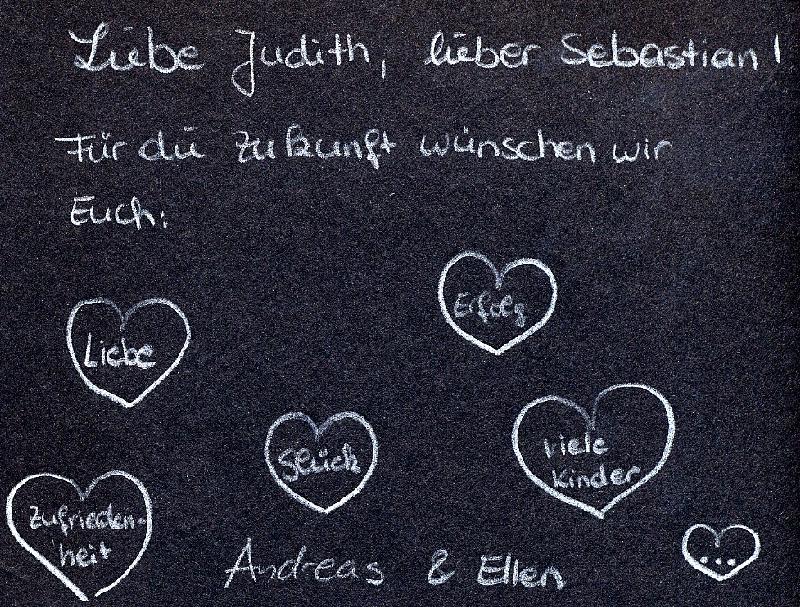 Liebe Judith, lieber Sebastian!
Für die Zukunft wünschen wir
Euch:
Erfolg
Liebe
Glück
viele
Kinder
Zufrieden-
heit
...
Andreas & Ellen